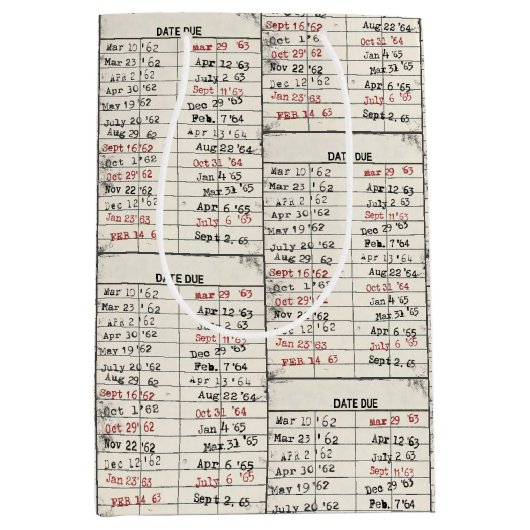 DATE DUE
Mar 10 '62 mar 29 '63
Mar 23 '62 Apr 12 '63
APR 2 '62 July 2 63
Apr 30 '62 Sept 11'63
May 19 '62 Dec 29 '63
July 20 '62 Feb. 7'64
Aug 29 62 Apr 13'64
Sept 16'62 Aug 22 '64
Oct 1 '62 Oct 31 '64
Oct 29' 62 Jan 4 '65
Nov 22 '62 Mar 31 '65
Dec 12 '62 Apr 6 '65
Jan 23' 63 July 6 '65
FEB 14 6 Sept 2, 65
DATE DUE
Mar 10 '62 mar 29 '63
Mar 23 '62 Apr 12 '63
APR 2 '62 July 2
Apr 30 '62 Sept 11
May 19 '62 Dec 29 '6
July 20 '62 Feb. 7'64
Aug 29 62 Apr 13'64
Sept 16'62 Aug 22 '64
Oct 1 '62 Oct 31 '64
Oct 29' 62 Jan 4 '65
Nov 22 '62 Mar 31 '65
Dec 12 '62 Apr 6 '65
Jan 23' 63 July 6 '65
FEB 14 63 Sept 2, 65
Sept 16'62 Aug 22 '64
Oct 1 '6 Oct 31 '64
Oct 29' 62 Jan 4 '65
Nov 22 '62 Mar 31 '65
Dec 12 '62 Apr 6 '65
Jan 23' 63 July 6 '65
FEB 14 63 Sept 2, 65
DATE DUE
Mar 10 '62 mar 29 '63
Mar 23 '62 Apr 12 '63
APR 2 '62 July 2 63
Apr 30 '62 Sept 11'63
May 19 '62 Dec 29 '63
July 20 '62 Feb. 7'64
Aug 29 62 Apr 13'64
Sept 16'62 Aug 22 '64
Oct 1 '62 Oct 31 '64
Oct 29' 62 Jan 4 '65
Nov 22 '62 Mar 31 '65
Dec 12 '62 Apr 6 '65
Jan 23' 63 July 6 '65
FEB 14 63 Sept 2, 65
DATE DUE
Mar 10 '62 mar 29 '63
Mar 23 '62 Apr 12 '63
APR 2 '62 July 2 63
Apr 30 '62 Sept 11'63
May 19 '62 Dec 29 '63
July 20 '62 Feb. 7'64